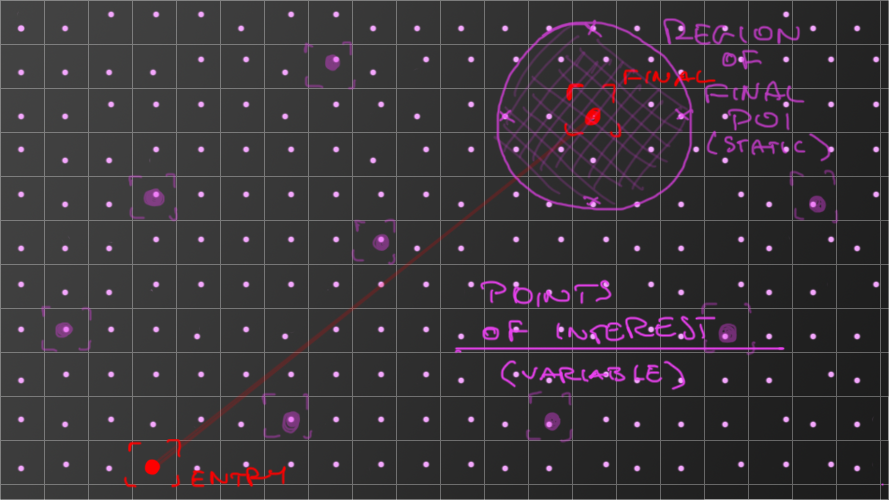 REGION
OF
FINAL
POI
(STATIC)
FINAL
POINTS
OF INTEREST
(VARIABLE)
ENTRY